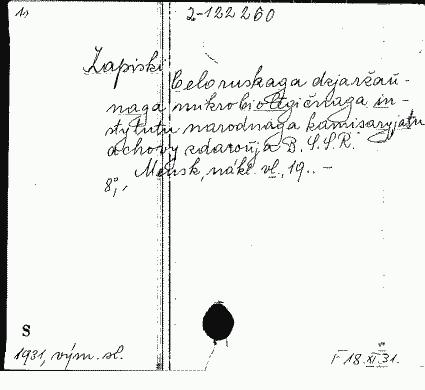 2-122260
Zapiski
Beloruskaga dzjaržaŭ-
naga mikrobiolegičnaga in-
stytutu narodnaga kamisaryjatu
achovy zdaroŭja B.S.S.R.
Mensk, nákl. vl. 19.. -
8°,
S
1931, vým. sl.
18.XI.31.